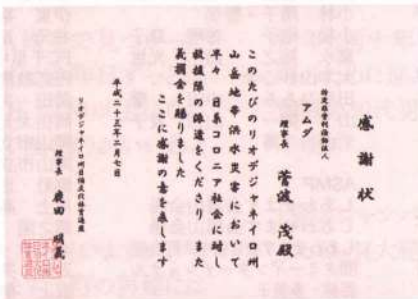 感謝状
特定非営利活動法人
アムダ
理事長 菅波 茂殿
このたびのリオデジャネイロ州
山岳地帯洪水災害において
早々 日系コロニア社会に対し
救援隊の派遣をくださり また
義捐金を賜りました
ここに感謝の意を表します
平成二十三年二月七日
リオデジャネイロ州日伯文化体育連盟
理事長 鹿田 明義